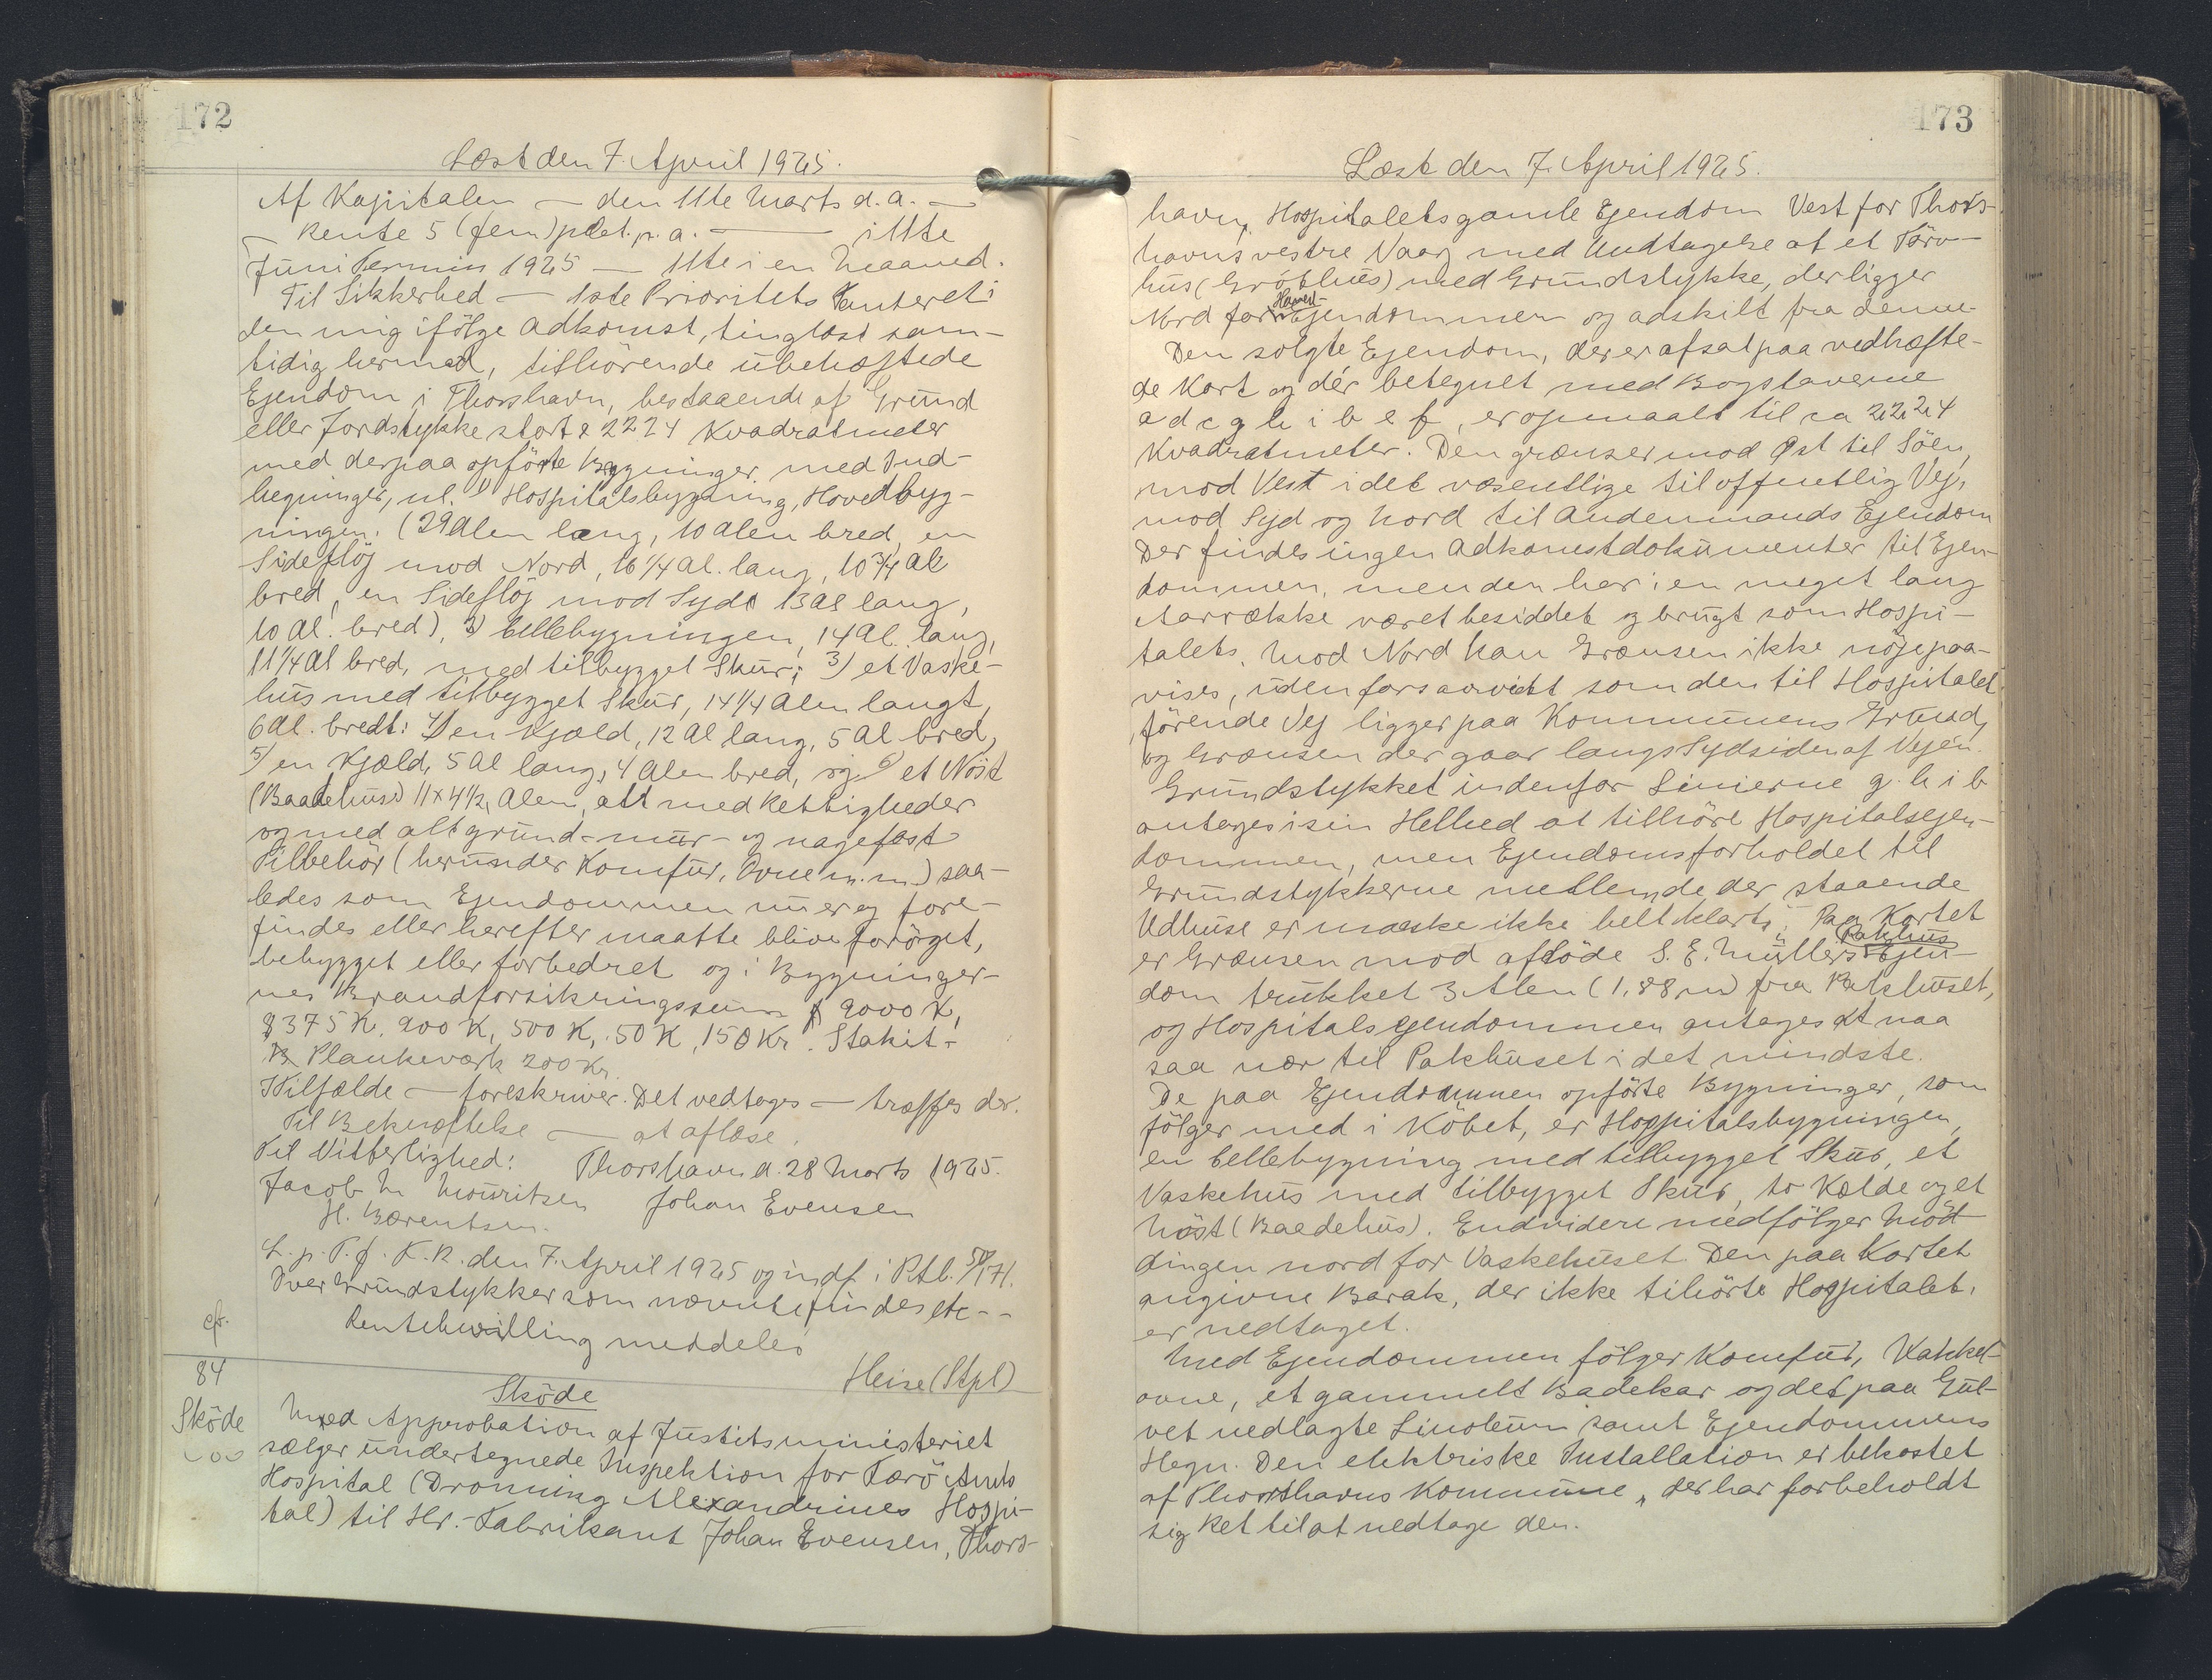 172
Læst den 7. April 1925.
Af Kapitalen — den 11te Marts d. a. —
— Rente 5 (fem) pCt. p. a. — 11te
Juni Termin 1925 — 11te i en Maaned.
Til Sikkerhed — 1ste Prioritets Panteret i
den mig ifölge Adkomst, tinglæst sam-
tidig hermed, tilhörende übehæftede
Ejendom i Thorshavn, bestaaende af Grund
eller Jordstykke stort 2224 Kvadratmeter
med derpaa opförte Bygninger med Ind-
hegninger, nl. 1) Hospitalsbygning, Hovedbyg-
ningen. (29 Alen lang, 10 Alen bred, en
Sideflöj mod Nord, 16 1/4 Al. lang, 10 3/4 Al
bred, en Sideflöj mod Syd 13 Al lang,
10 Al. bred), 2) Cellebygningen, 14 Al. lang,
11 1/4 Al bred, med tilbygget Skür; 3) et Vaske-
hüs med tilbygget Skür, 14 1/4 Alen langt,
6 Al. bredt: 4) en Kjæld, 12 Al lang, 5 Al bred,
5) en Kjæld, 5 Al lang, 4 Alen bred, og 6) et Nöst
(Baadehüs) 11 x 4 1/2 Alen, alt med Rettigheder
og med alt grund- mür- og nagefast
Tilbehör (heründer Komfür, Ovne m. m.) saa-
ledes som Ejendommen nü er og fore-
findes eller herefter maatte blive forörget,
bebygget eller forbedret og i Bygninger-
nes Brandforsikringssum 9000 K,
8375 K. 900 K, 500 K, 50 K, 150 Kr. Stakit-
Plankeværk 200 Kr.
I Tilfælde — foreskriver. Det vedtages — træffes der.
Til Bekræftelse — at aflæse.
Til Vitterlighed: Thorshavn d. 28 Marts 1925.
Jacob M Mouritsen Johan Evensen
H. Bærentsen.
L. p. T. f. K. R. den 7. April 1925 og indf. i Ptb. 50/171.
Over Grundstykker som nævnte findes etc --
cfr. Rentebevilling meddeles
Heise (Stpl)
84
Sköde
Sköde Med Approbation af Justitsministeriet
sælger undertegnede Inspektion for Færö Amts
Hospital (Dronning Alexandrines Hospi-
tal) til Hr. Fabrikant Johan Evensen, Thors-
173
Læst den 7. April 1925.
havn, Hospitalets gamle Ejendom Vest for Thors-
havns vestre Vaag med Undtagelse af et Törv-
hüs (Gróthüs) med Grundstykke, der ligger
Nord for Hoved-Ejendommen og adskilt fra denne.
Den solgte Ejendom, der er afsat paa vedhæfte-
de Kort og dér betegnet med Bogstaverne
a d c g h i b e f, er opmaalt til ca 2224
Kvadratmeter. Den grænser mod Öst til Söen,
mod Vest i det væsentlige til offentlig Vej,
mod Syd og Nord til Andenmands Ejendom
Der findes ingen Adkomstdokumenter til Ejen-
dommen, men den har i en meget lang
Aarrække været besiddet og brugt som Hospi-
talets. Mod Nord kan Grænsen ikke nöje paa-
vises, uden forsaavidt som den til Hospitalet
förende Vej ligger paa Kommünens Grund,
og Grænsen der gaar langs Sydsiden af Vejen.
Grundstykket indenfor Linierne g. h i b
antages i sin Helhed at tilhöre Hospitalsejen-
dommen, men Ejendomsforholdet til
Grundstykkerne mellem de der staaende
Udhuse er maaske ikke helt klart. Paa Kortet
er Grænsen mod afdöde S. E. Müllers Pakhüs Ejen-
dom trükket 3 Alen (1,88 m) fra Pakhüset,
og Hospitalsejendommen antages at naa
saa nær til Pakhüset i det mindste.
De paa Ejendommen opförte Bygninger, som
fölger med i Köbet, er Hospitalsbygningen,
en Cellebygning med tilbygget Skür, et
Vaskehüs med tilbygget Skür, to Kælde og et
Nöst (Baadehüs). Endvidere medfölger Möd-
dingen nord for Vaskehüset. Den paa Kortet
angivne Barak, der ikke tilhörte Hospitalet,
er nedtaget.
Med Ejendommen fölger Komfür, Kakkel-
ovne, et gammelt Badekar og det paa Gul-
vet nedlagte Linoleüm samt Ejendommens
Hegn. Den elektriske Installation er bekostet
af Thorshavns Kommüne, der har forbeholdt
sig Ret til at nedtage den.